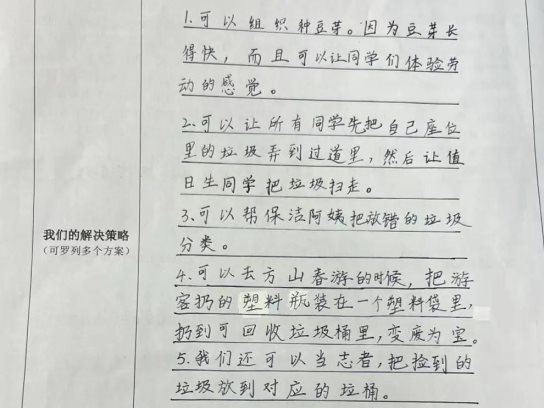 我们的解决策略
（可罗列多个方案）
1.可以组织种豆芽。因为豆芽长
得快，而且可以让同学们体验劳
动的感觉。
2.可以让所有同学先把自己座位
里的垃圾弄到过道里，然后让值
日生同学把垃圾扫走。
3、可以帮保洁阿姨把放错的垃圾
分类。
4.可以去方山春游的时候，把游
客扔的塑料瓶装在一个塑料袋里，
扔到可回收垃圾桶里，变废为宝。
5.我们还可以当志者，把捡到的
垃圾放到对应的垃桶。